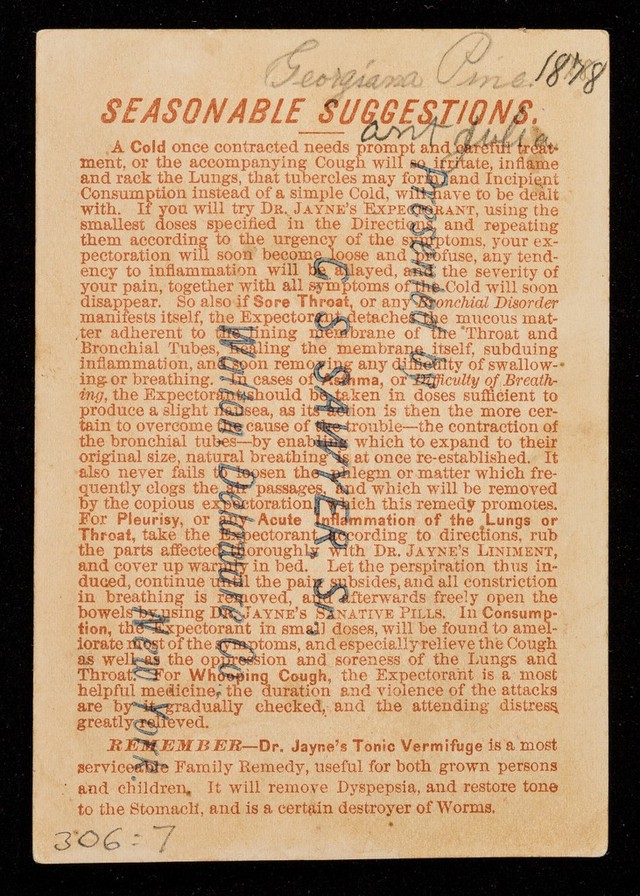 Georgiana Pine 1878
SEASONABLE SUGGESTIONS.
ant Julia
A Cold once contracted needs prompt and careful treat-
ment, or the accompanying Cough will so irritate, inflame
and rack the Lungs, that tubercles may form, and Incipient
Consumption instead of a simple Cold, will have to be dealt
with. If you will try DR. JAYNE'S EXPECTORANT, using the
smallest doses specified in the Directions, and repeating
them according to the urgency of the symptoms, your ex-
pectoration will soon become loose and profuse, any tend-
ency to inflammation will be allayed, and the severity of
your pain, together with all symptoms of the Cold will soon
disappear. So also if Sore Throat, or any Bronchial Disorder
manifests itself, the Expectorant detaches the mucous mat-
ter adherent to the lining membrane of the Throat and
Bronchial Tubes, healing the membrane itself, subduing
inflammation, and soon removing any difficulty of swallow-
ing or breathing. In cases of Asthma, or Difficulty of Breath-
ing, the Expectorant should be taken in doses sufficient to
produce a slight nausea, as its action is then the more cer-
tain to overcome the cause of the trouble—the contraction of
the bronchial tubes—by enabling which to expand to their
original size, natural breathing is at once re-established. It
also never fails to loosen the phlegm or matter which fre-
quently clogs the air passages, and which will be removed
by the copious expectoration which this remedy promotes.
For Pleurisy, or any Acute Inflammation of the Lungs or
Throat, take the Expectorant according to directions, rub
the parts affected thoroughly with DR. JAYNE'S LINIMENT,
and cover up warmly in bed. Let the perspiration thus in-
duced, continue until the pain subsides, and all constriction
in breathing is removed, and afterwards freely open the
bowels by using DR. JAYNE'S SANATIVE PILLS. In Consump-
tion, the Expectorant in small doses, will be found to amel-
iorate most of the symptoms, and especially relieve the Cough
as well as the oppression and soreness of the Lungs and
Throat. For Whooping Cough, the Expectorant is a most
helpful medicine, the duration and violence of the attacks
are by it gradually checked, and the attending distress
greatly relieved.
REMEMBER—Dr. Jayne's Tonic Vermifuge is a most
serviceable Family Remedy, useful for both grown persons
and children. It will remove Dyspepsia, and restore tone
to the Stomach, and is a certain destroyer of Worms.
Presented by
C S SAWYER, Sr.,
Walton, Delaware Co.,
New York.
306:7